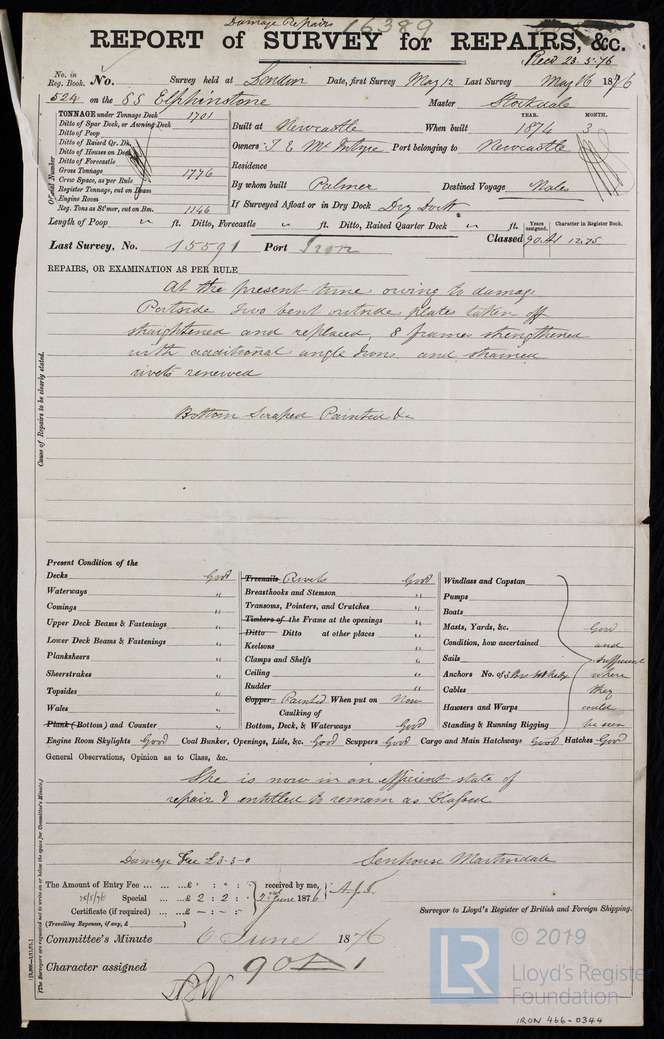 Damage Repairs 16389
REPORT of SURVEY for REPAIRS, &c.
Recd 23.5.76
No. in Reg. Book. No. Survey held at London Date, first Survey May 12 Last Survey May 16 1876
524 on the SS Elphinstone Master Stockdale
TONNAGE under Tonnage Deck 1701
Ditto of Spar Deck, or Awning Deck
Ditto of Poop
Ditto of Raised Qr. Dk.
Ditto of Houses on Deck
Ditto of Forecastle
Gross Tonnage 1776
Crew Space, as per Rule
Register Tonnage, cut on Beam
Engine Room
Reg. Tons as St'mer, cut on Bm. 1146
Official Number
YEAR. MONTH.
Built at Newcastle When built 1874 3
Owners T E McIntyre Port belonging to Newcastle
Residence
By whom built Palmer Destined Voyage Wales
If Surveyed Afloat or in Dry Dock Dry Dock
Length of Poop " ft. Ditto, Forecastle " ft. Ditto, Raised Quarter Deck " ft.
Years assigned. Character in Register Book.
Last Survey, No. 15591 Port Iron Classed 90A1 12.75
REPAIRS, OR EXAMINATION AS PER RULE
At the present time, owing to damage
Portside two bent outside plates taken off
straightened and replaced, 8 frames strengthened
with additional angle Irons, and strained
rivets renewed
Bottom Scraped Painted &c
Cause of Repairs to be clearly stated.
Present Condition of the
Decks Good
Waterways "
Comings "
Upper Deck Beams & Fastenings "
Lower Deck Beams & Fastenings "
Planksheers "
Sheerstrakes "
Topsides "
Wales "
Plank (Bottom) and Counter "
Treenails Rivets Good
Breasthooks and Stemson "
Transoms, Pointers, and Crutches "
Timbers of the Frame at the openings "
Ditto Ditto at other places "
Keelsons "
Clamps and Shelfs "
Ceiling "
Rudder "
Copper Painted When put on Now
Caulking of
Bottom, Deck, & Waterways Good
Windlass and Capstan
Pumps
Boats
Masts, Yards, &c.
Condition, how ascertained
Sails
Anchors No. of
Cables
Hawsers and Warps
Standing & Running Rigging
Good
and
sufficient
where
they
could
be seen
Engine Room Skylights Good Coal Bunker, Openings, Lids, &c. Good Scuppers Good Cargo and Main Hatchways Good Hatches Good
General Observations, Opinion as to Class, &c.
She is now in an efficient state of
repair & entitled to remain as Classed
Damage Fee £3-3-0 Senhouse Martindale
The Amount of Entry Fee £ : : received by me,
25/5/76 Special £ 2 : 2 : 2nd June 1876 A.J.J.
Certificate (if required) £ - : - : -
(Travelling Expenses, if any, £ )
Surveyor to Lloyd's Register of British and Foreign Shipping.
Committee's Minute 6 June 1876
Character assigned 90A1
(The Surveyors are requested not to write on or below the space for Committee's Minute.)
© 2019
LR
Lloyd's Register
Foundation
IRON 466-0344